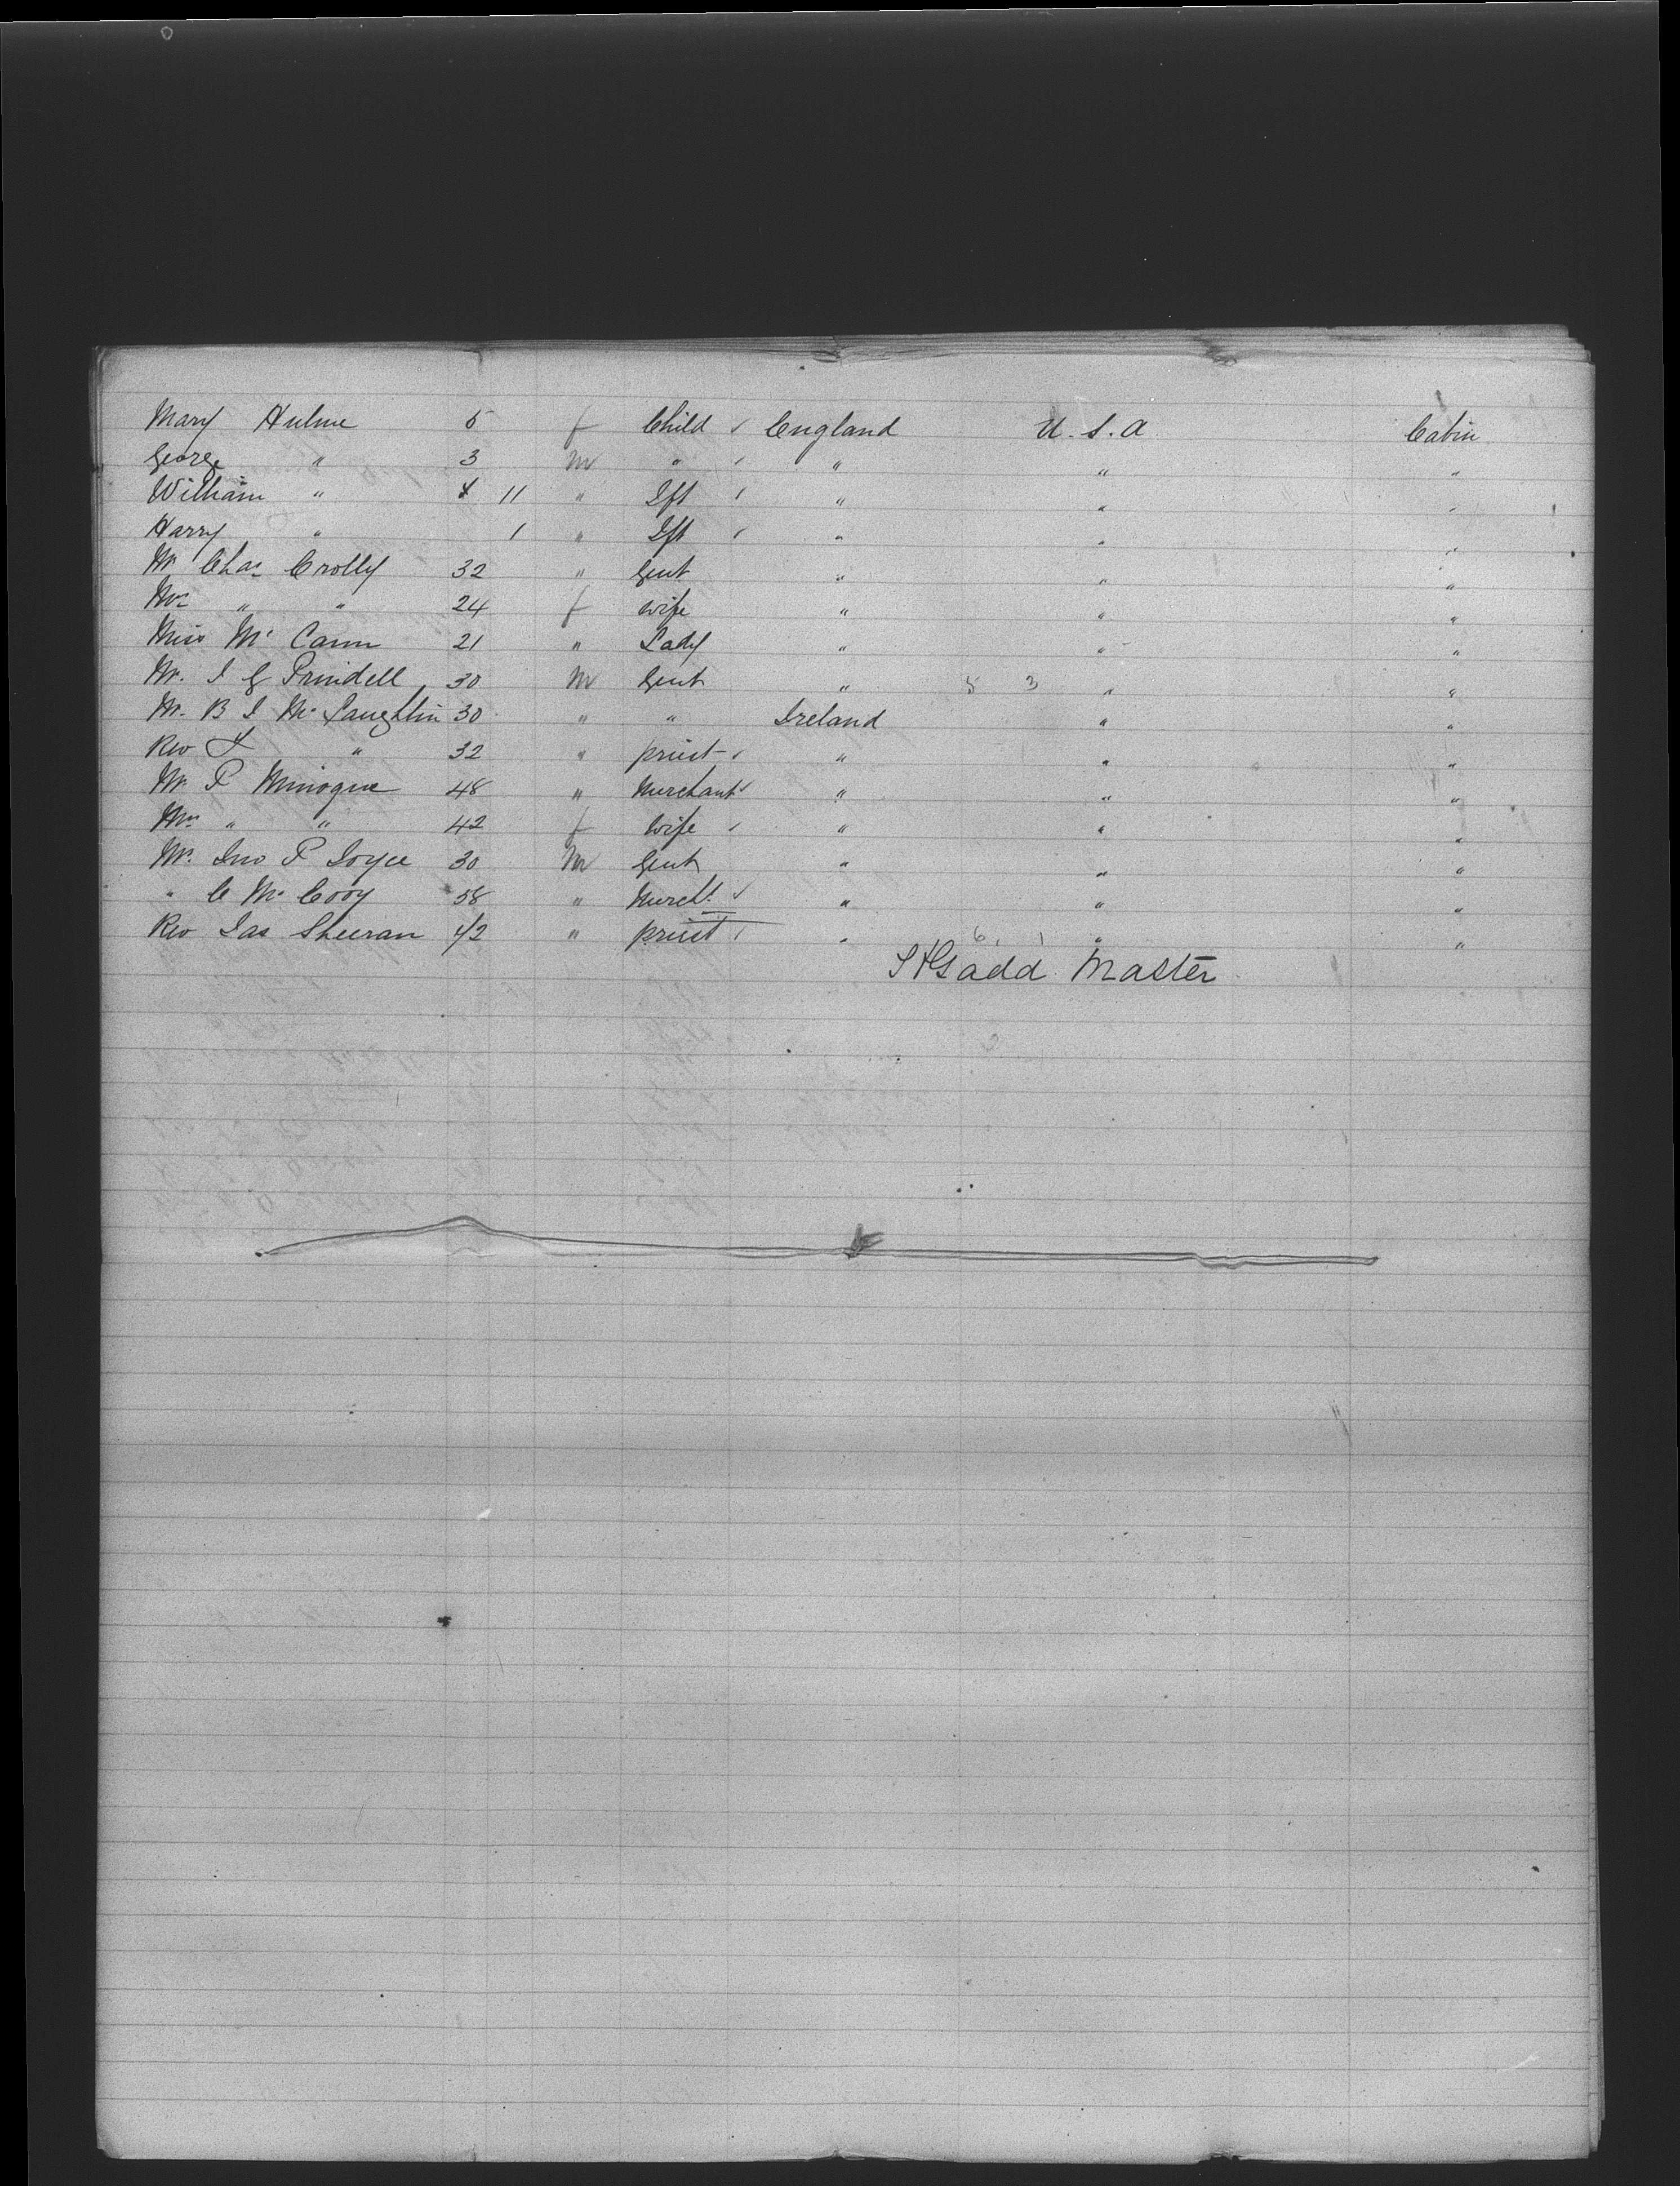 Mary Hulme 5 f Child ✓ England U.S.A. Cabin
George " 3 M " ✓ " " "
William " 11 " Ift ✓ " " "
Harry " 1 " Ift ✓ " " "
Mr Chas Crolly 32 " Gent " " "
Mrs " " 24 f wife " " "
Miss Mc Cann 21 " Lady " " "
Mr. J G Prindell 30 M Gent " 5 3 " "
Mr. B J Mc Laughlin 30 " " Ireland " "
Rev " 32 " priest ✓ " " "
Mr P Minogue 48 " Merchant ✓ " " "
Mrs " " 42 f Wife ✓ " " "
Mr. Jno P Joyce 30 M Gent " " "
" C Mc Cooy 58 " Mercht ✓ " " "
Rev Jas Sheeran 42 " priest ✓ " 6 1 " "
S H Gadd Master